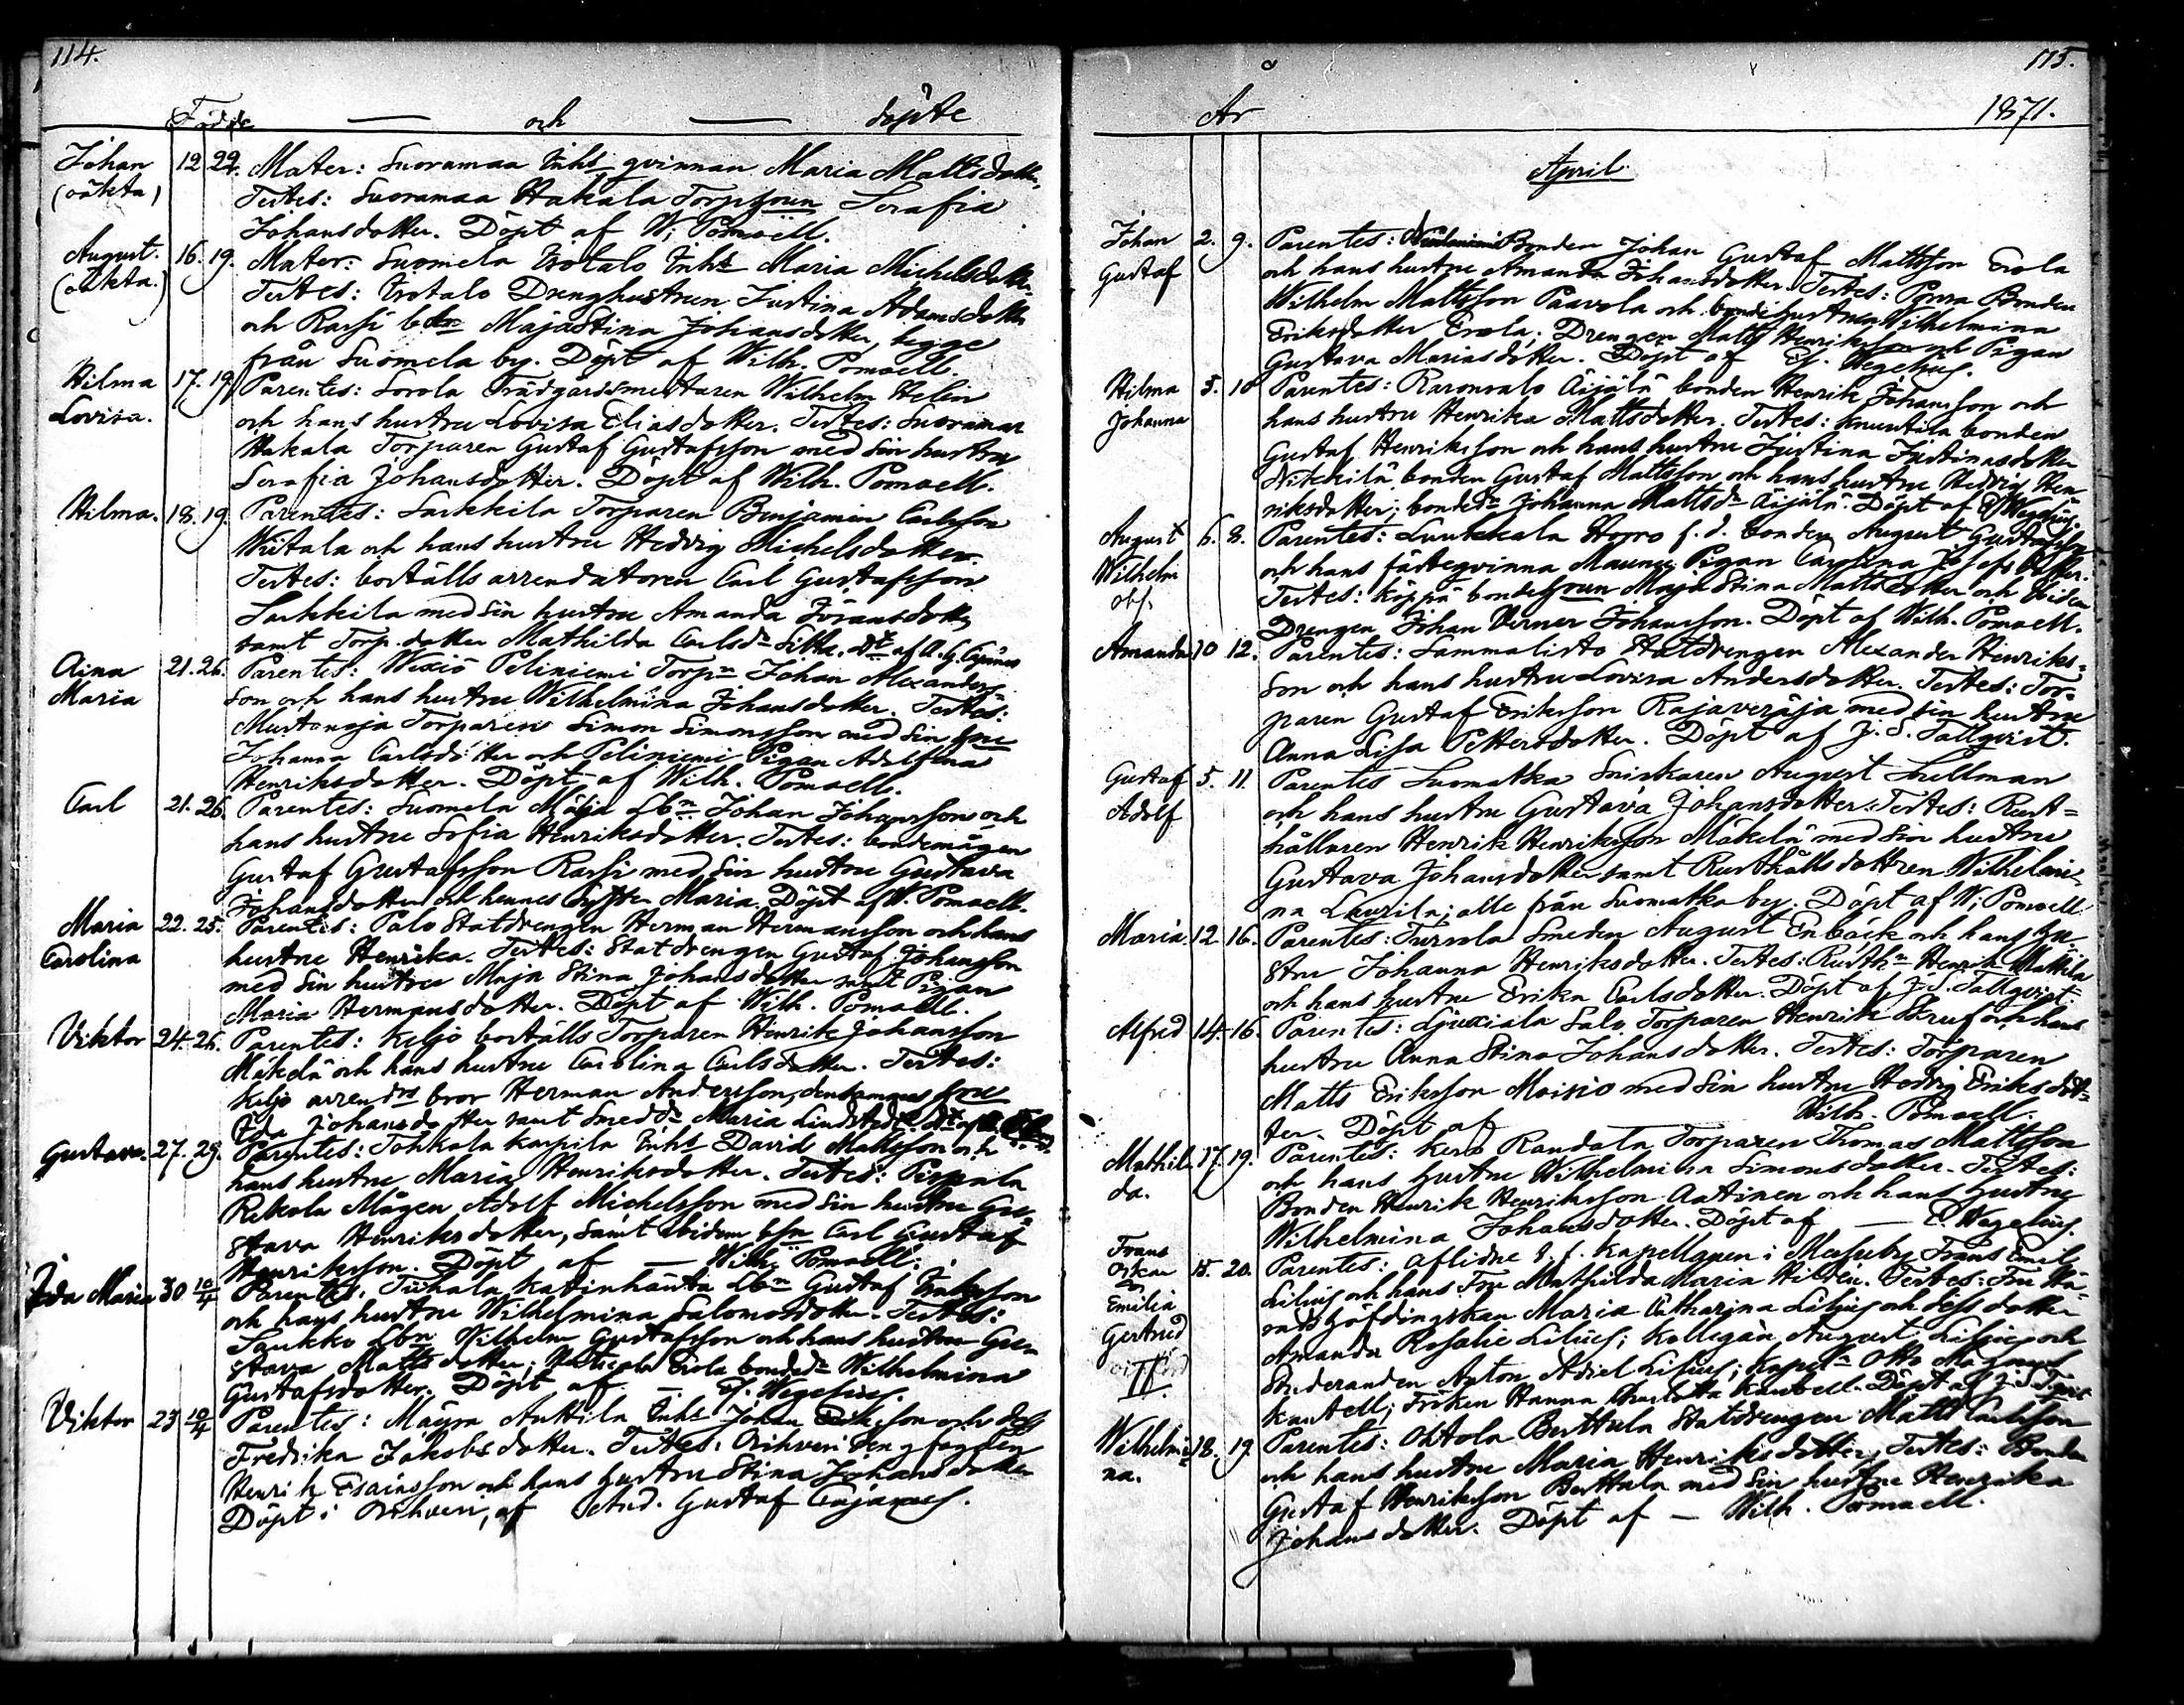 114.
Födde — och — döpte
Johan 12 22. Mater: Suoramaa Inhs qvinnan Maria Mattsdotter,
(oäkta) Testes: Suoramaa Hakala Torp hrun Serafia
Johansdotter. Döpt af W; Pomoell.
August. 16. 19. Mater: Suomela Isotalo Inhs Maria Michelsdotter.
(oäkta.) Testes: Isotalo Drenghustrun Justina Adamsdotter
och Rassi Majastina Johansdotter, begge
från Suomela by. Döpt af Wilh. Pomoell.
Hilma 17. 19. Parentes: Sorola Trädgårdsmestaren Wilhelm Helin
Lovisa. och hans hustru Lovisa Eliasdotter. Testes: Suoramaa
Hakala Torparen Gustaf Gustafsson med sin hustru
Serafia Johansdotter. Döpt af Wilh. Pomoell.
Hilma. 18. 19. Parentes: Sarkkila Torparen Benjamin Carlsson
Wiitala och hans hustru Hedvig Michelsdotter.
Testes: boställs arrendatoren Carl Gustafsson
Sarkkila med sin hustru Amanda Göransdotter
samt Torp. dotter Mathilda Carlsdr af A. G.
Aina 21. 26. Parentes: Wexiö Peliniemi Torpn Johan Alexanders=
Maria son och hans hustru Wilhelmina Johansdotter. Testes:
Mustanoja Torparen Simon Simonsson med sin hru
Johanna Carlsdotter och Peliniemi Pigan Adolfina
Henriksdotter. Döpt af Wilh. Pomoell.
Carl 21. 26. Parentes: Suomela Mälja Lbn Johan Johansson och
hans hustru Sofia Henriksdotter. Testes: bondemågen
Gustaf Gustafsson Rassi med sin hustru Gustava
Johansdotter och hennes syster Maria. Döpt af W. Pomoell.
Maria 22. 25. Parentes: Palo Statdrengen Herman Hermansson och hans
Carolina hustru Henrika. Testes: Statdrengen Gustaf Johansson
med sin hustru Maja Stina Johansdotter samt Pigan
Maria Hermansdotter. Döpt af Wilh. Pomoell.
Viktor 24. 26. Parentes: Keljo boställs Torparen Henrik Johansson
Mäkelä och hans hustru Carolina Carlsdotter. Testes:
Keljo arrendrs bror Herman Andersson, densammes hru
Eda Johansdotter samt Smeddr Maria Lindstedt.
Gustava. 27. 29. Parentes: Tohkala Karpila Inhs David Mattsson och
hans hustru Maria Henriksdotter. Testes: Pispala
Rekola Mågen Adolf Michelsson med sin hustru Gu=
stava Henriksdotter, samt ibidem bsn Carl Gustaf
Henriksson. Döpt af — Wilh. Pomoell.
Ida Maria 30 10/4 Parentes: Tiihala Katinhänta Lbn Gustaf
och hans hustru Wilhelmina Salomosdotter. Testes:
Saukko Lbn Wilhelm Gustafsson och hans hustru Gu=
stava Mattsdotter; Erola bondedr Wilhelmina
Gustafsdotter. Döpt af — E. Wegelius.
Viktor 23 10/4 Parentes: Mäyrä Anttila Inhs Johan Eriksson och dess
Fredrika Jakobsdotter. Testes: Orihveri Dengfogden
Henrik Esaiasson och hans hustru Stina Johansdotter
Döpt i Orihveri, af Gustaf Cajanus.
115.
År 1871.
April.
Johan 2. 9. Parentes: Bonden Johan Gustaf Mattsson Erola
Gustaf och hans hustru Amanda Johansdotter. Testes: Bonden
Wilhelm Mattsson Paavola och bondehustrun Wilhelmina
Eriksdotter Erola; Drengen Matts Henriksson och Pigan
Gustava Mariasdotter. Döpt af E. Wegelius.
Hilma 5. 10 Parentes: Raronvalo Äijälä bonden Henrik Johansson och
Johanna hans hustru Henrika Mattsdotter. Testes: Knuutila bonden
Gustaf Henriksson och hans hustru Justina Justinasdotter
bonden Gustaf Mattsson och hans hustru Hedvig Hen=
riksdotter; bondedr Johanna Mattsdr Äijälä. Döpt af E. Wegelius.
August 6. 8. Parentes: Luukkala Horro f. d. bonden August Gustafsson
Wilhelm och hans fästeqvinna Maunu Pigan Carolina Josefsdotter.
obs. Testes: Käppä bondehrun Maja Stina Mattsdotter och ibidem
Drengen Johan Verner Johansson. Döpt af Wilh. Pomoell.
Amanda 10 12. Parentes: Sammalisto Statdrengen Alexander Henriks=
son och hans hustru Lovisa Andersdotter. Testes: Tor=
paren Gustaf Eriksson Rajaveräjä med sin hustru
Anna Lisa Pettersdotter. Döpt af J. S. Tallqvist.
Gustaf 5. 11. Parentes Suomatka Sniskaren August Sullman
Adolf och hans hustru Gustava Johansdotter. Testes: Rust=
hållaren Henrik Henriksson Mäkelä med sin hustru
Gustava Johansdotter samt Rusthålls dottren Wilhelmi=
na Laurila; alla från Suomatka by. Döpt af W: Pomoell
Maria. 12 16. Parentes: Turvola Smeden August Enbäck och hans hu=
stru Johanna Henriksdotter. Testes: Rusthn Henrik Mattila
och hans hustru Erika Carlsdotter. Döpt af J. S. Tallqvist.
Alfred 14. 16. Parentes: Ljuxiala Salo Torparen Henrik Skruf och hans
hustru Anna Stina Johansdotter. Testes: Torparen
Matts Eriksson Moisio med sin hustru Hedvig Eriksdot=
ter. Döpt af Wilh. Pomoell.
Mathil= 17. 19. Parentes: Kerä Randata Torparen Thomas Mattsson
da. och hans hustru Wilhelmina Simonsdotter. Testes:
Bonden Henrik Henriksson Aatinen och hans hustru
Wilhelmina Johansdotter. Döpt af — E. Wegelius.
Frans 15. 20. Parentes: aflidne v. f. Kapellanen i Messuby Frans Emil
Oskar Lilius och hans Fru Mathilda Maria Hildén. Testes: Fru Hä=
Emilia radshöfdingskan Maria Catharina Lilius och dess dotter
Gertrud Amanda Rosalie Lilius; Kollegan August Lilius och
II. Studeranden Anton Adiel Lilius; Kapeln Otto Magnus
Kantell; Fröken Hanna Charlotta Kantell. Döpt af J. S. Tqvist
Wilhelmi= 18. 19. Parentes: Ohtola Berttula Statdrengen Matts Carlsson
na. och hans hustru Maria Henriksdotter. Testes: Bonden
Gustaf Henriksson Berttula med sin hustru Henrika
Johansdotter. Döpt af — Wilh. Pomoell.